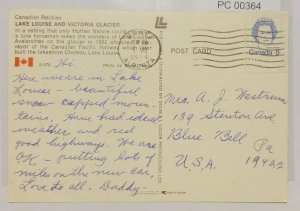 PC 00364
Canadian Rockies
LAKE LOUISE AND VICTORIA GLACIER
In a setting that only Mother Nature could
a long horseman views the wonders of
Avalanches on the glacier in 1882 attracted
veyor of the Canadian Pacific Railway
built the lakeshore Chateau Lake Louise.
ALBERTA
POST CARD
Canada 6
Hi
Here we are in Lake
Louise - beautiful
snow capped moun-
tains. Have had ideal
weather and real
good highways. We are
OK - putting lots of
miles on the new car,
Love to all - Daddy.
Mrs. A. J. Westrum
139 Stenton Ave
Blue Bell Pa
U.S.A. 19422